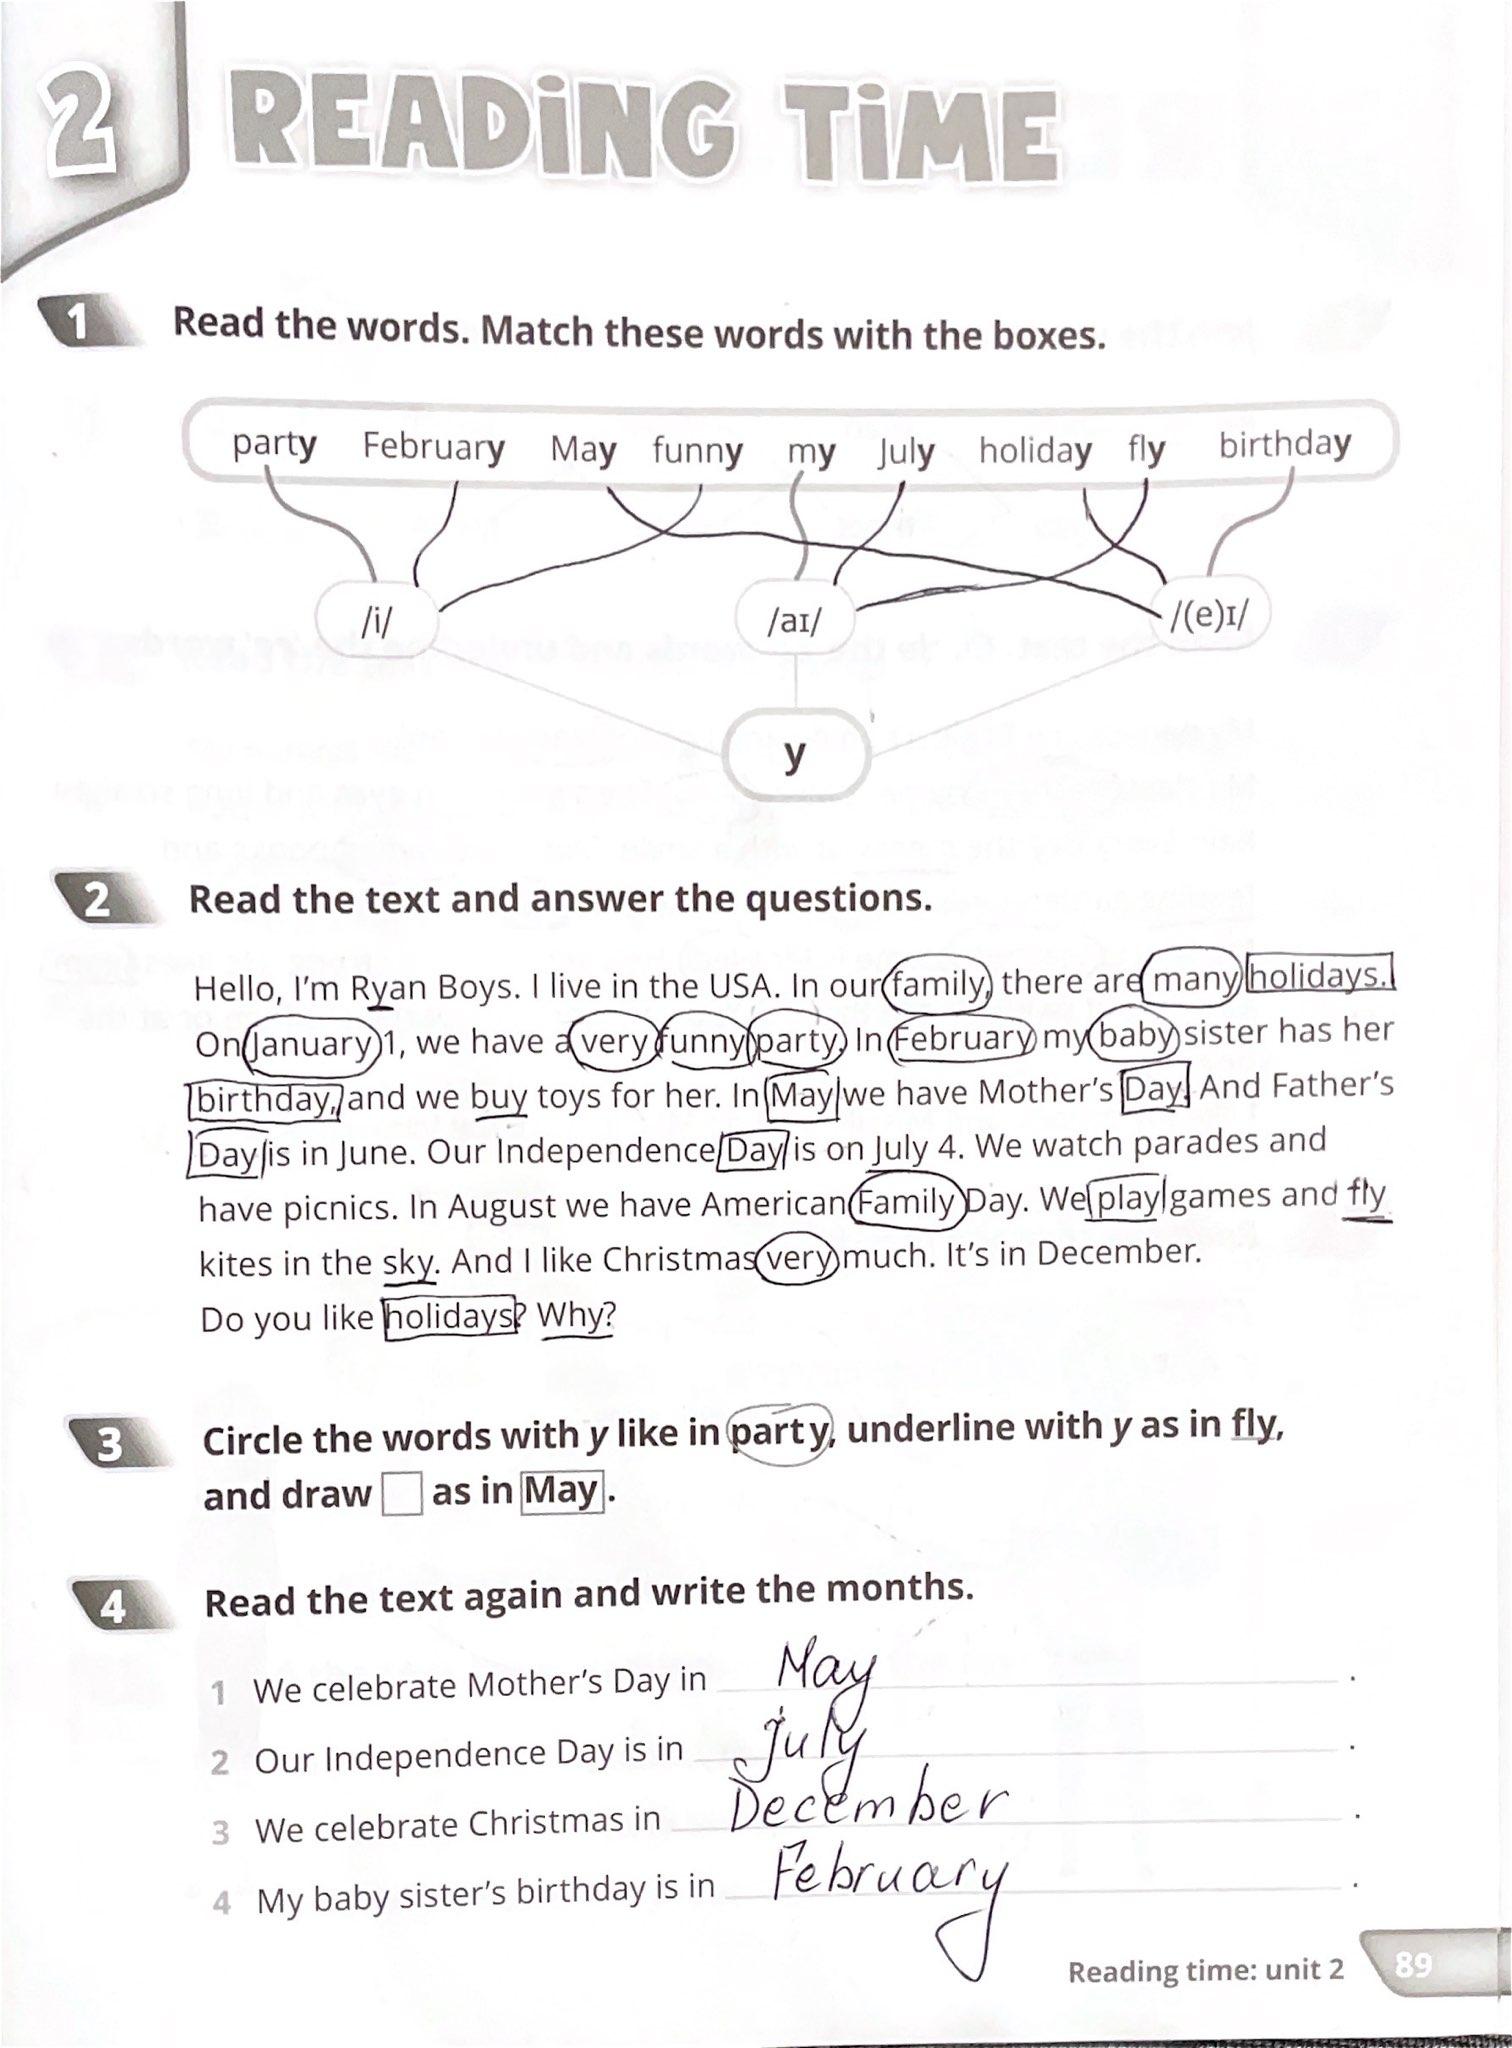 2 READING TIME
1 Read the words. Match these words with the boxes.
party February May funny my July holiday fly birthday
/i/ /aɪ/ /(e)ɪ/
y
2 Read the text and answer the questions.
Hello, I'm Ryan Boys. I live in the USA. In our family, there are many holidays.
On January 1, we have a very funny party. In February my baby sister has her
birthday, and we buy toys for her. In May we have Mother's Day. And Father's
Day is in June. Our Independence Day is on July 4. We watch parades and
have picnics. In August we have American Family Day. We play games and fly
kites in the sky. And I like Christmas very much. It's in December.
Do you like holidays? Why?
3 Circle the words with y like in party, underline with y as in fly,
and draw as in May.
4 Read the text again and write the months.
1 We celebrate Mother's Day in May.
2 Our Independence Day is in July.
3 We celebrate Christmas in December.
4 My baby sister's birthday is in February.
Reading time: unit 2 89